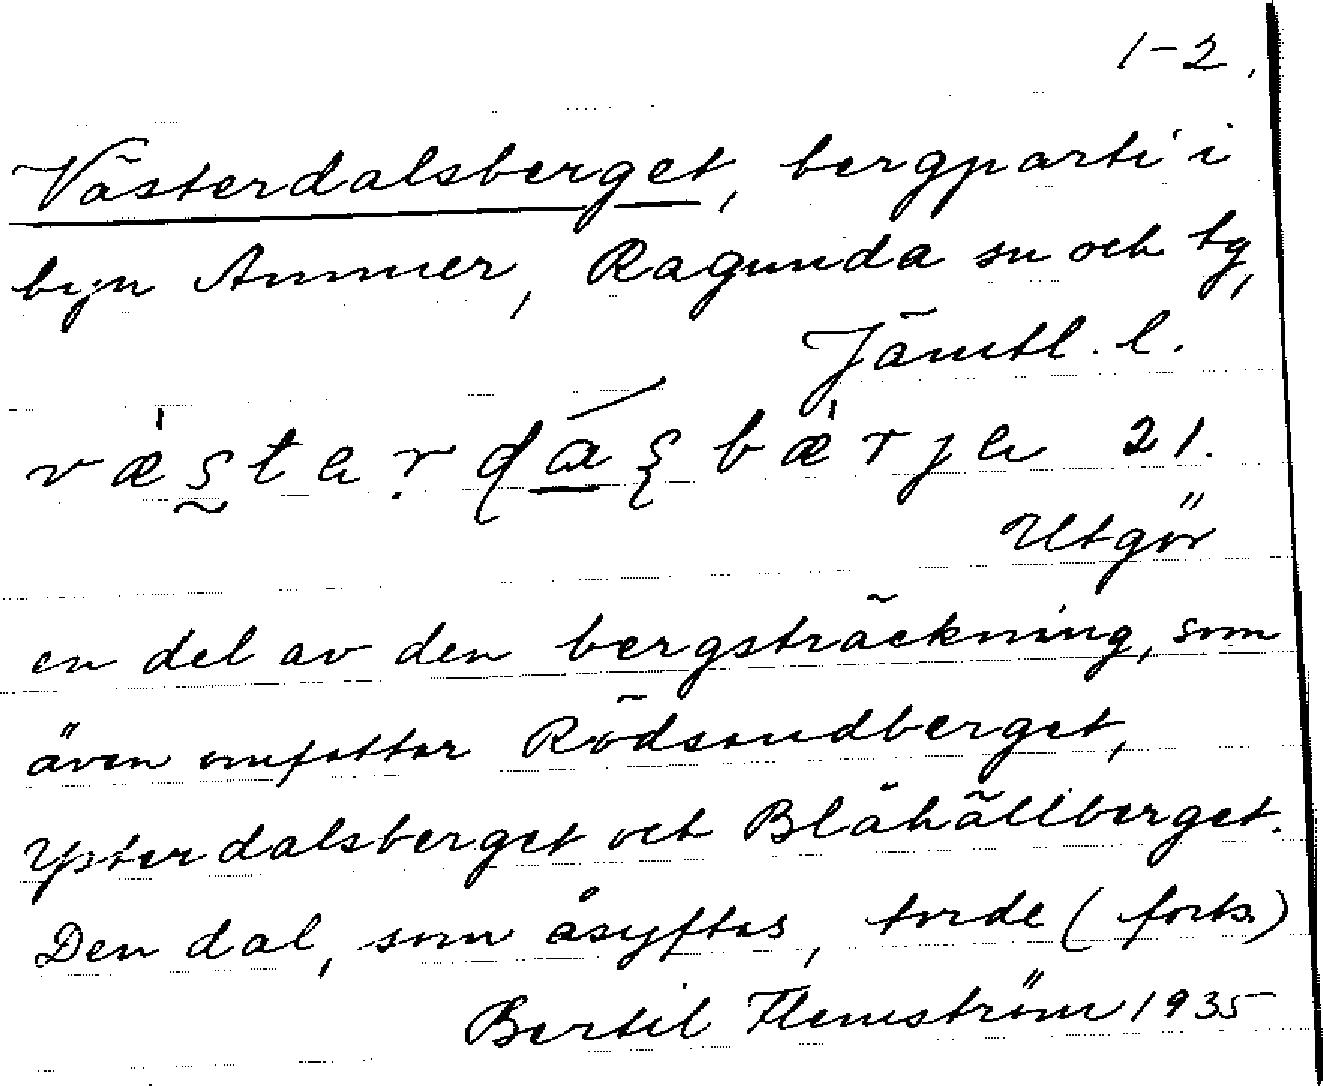 1-2.
Västerdalsberget, bergparti i
byn Ammer, Ragunda sn och tg,
Jämtl. l.
væ̀s̰tar̥dɑ́ʂbæ̀rja 21.
Utgör
en del av den bergsträckning, som
även omfattar Rödsandberget,
Ysterdalsberget och Blåhällberget.
Den dal, som åsyftas, torde (forts.)
Bertil Flemström 1935